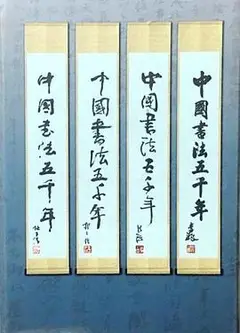 中國書法五千年
中国書法五千年
中國書法五千年
中国書法五千年